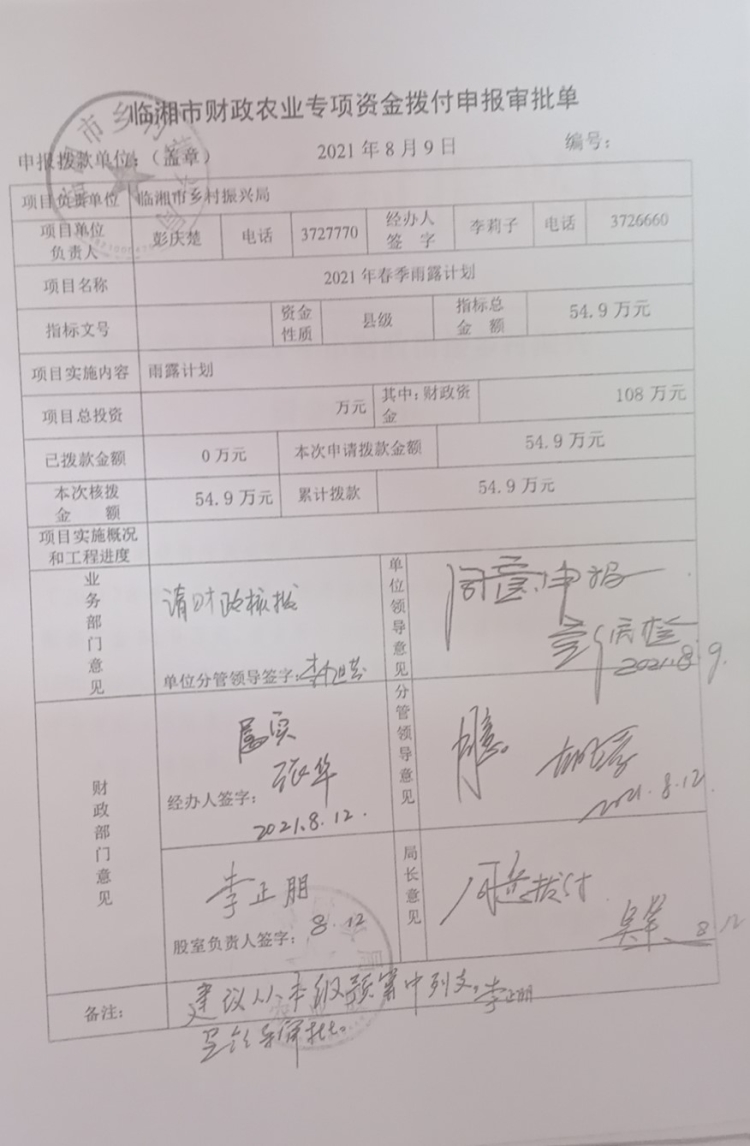 临湘市财政农业专项资金拨付申报审批单
申报拨款单位:（盖章） 2021 年 8 月 9 日 编号:
项目负责单位 临湘市乡村振兴局
项目单位负责人 彭庆楚 电话 3727770 经办人签 字 李莉子 电话 3726660
项目名称 2021 年春季雨露计划
指标文号 资金性质 县级 指标总金 额 54.9 万元
项目实施内容 雨露计划
项目总投资 万元 其中:财政资金 108 万元
已拨款金额 0 万元 本次申请拨款金额 54.9 万元
本次核拨金 额 54.9 万元 累计拨款 54.9 万元
项目实施概况和工程进度
业务部门意见 请财政核拨 单位领导意见 同意申报
单位分管领导签字: 2021.8.9.
财政部门意见 属实 分管领导意见 同意
经办人签字: 张华
2021.8.12. 2021.8.12.
李正朋 局长意见 同意拨付
股室负责人签字: 8.12 8.12
备注: 建议从本级预算中列支。李正朋
呈领导审批。